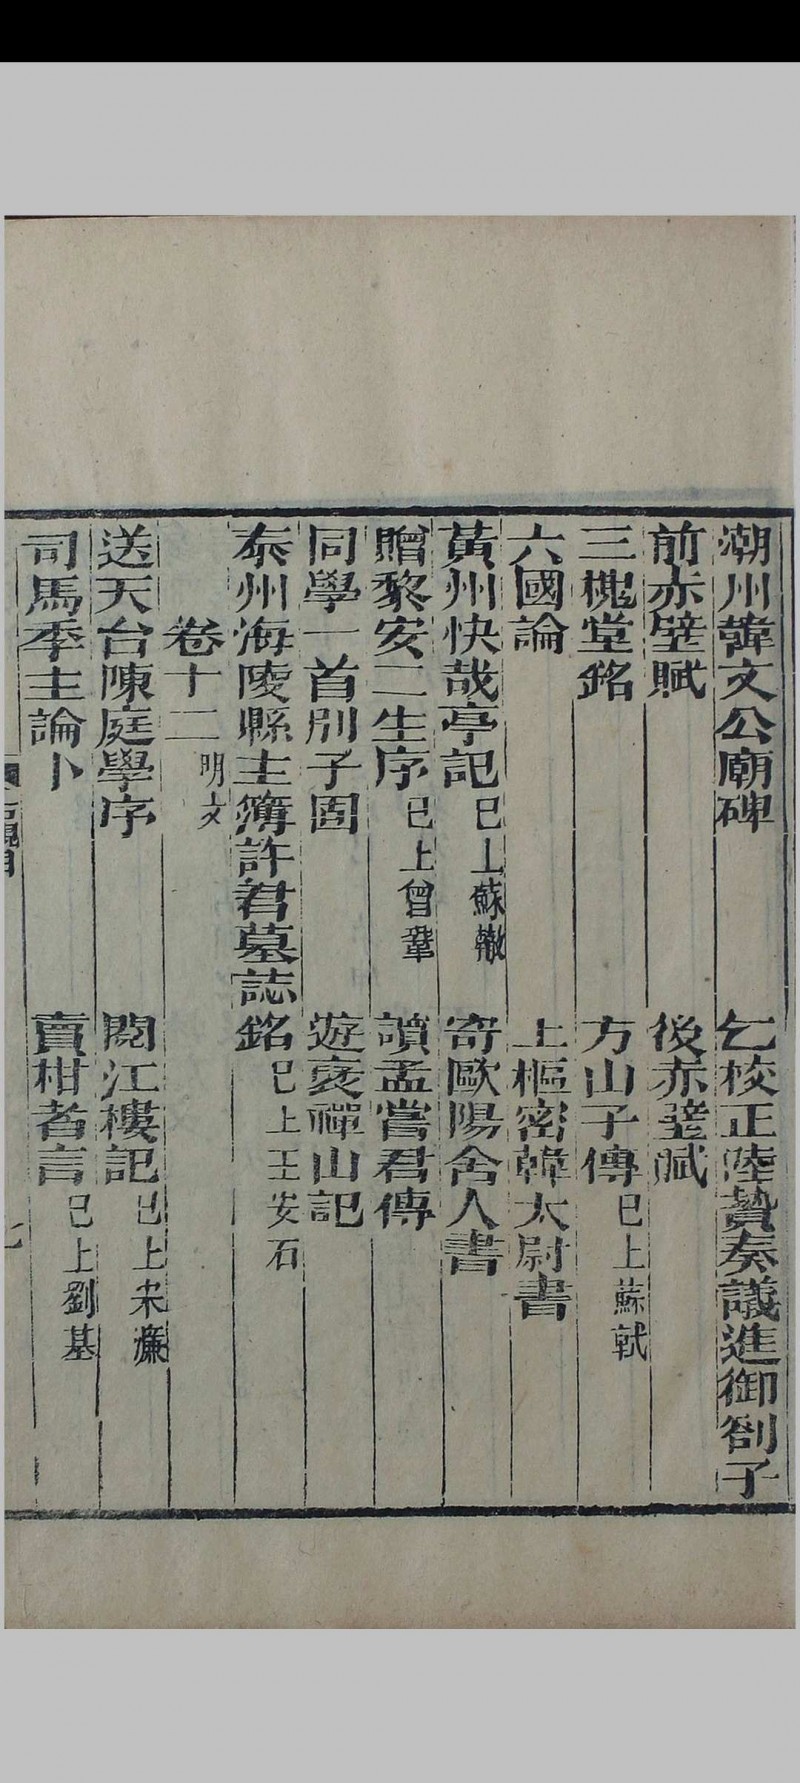 潮州韓文公廟碑 乞校正陸贄奏議進御劄子
前赤壁賦 後赤壁賦
三槐堂銘 方山子傳 已上蘇軾
六國論 上樞密韓太尉書
黃州快哉亭記 已上蘇轍 寄歐陽舍人書
贈黎安二生序 已上曾鞏 讀孟嘗君傳
同學一首別子固 遊褒禪山記
泰州海陵縣主簿許君墓誌銘 已上王安石
卷十二 明文
送天台陳庭學序 閱江樓記 已上宋濂
司馬季主論卜 賣柑者言 已上劉基
七